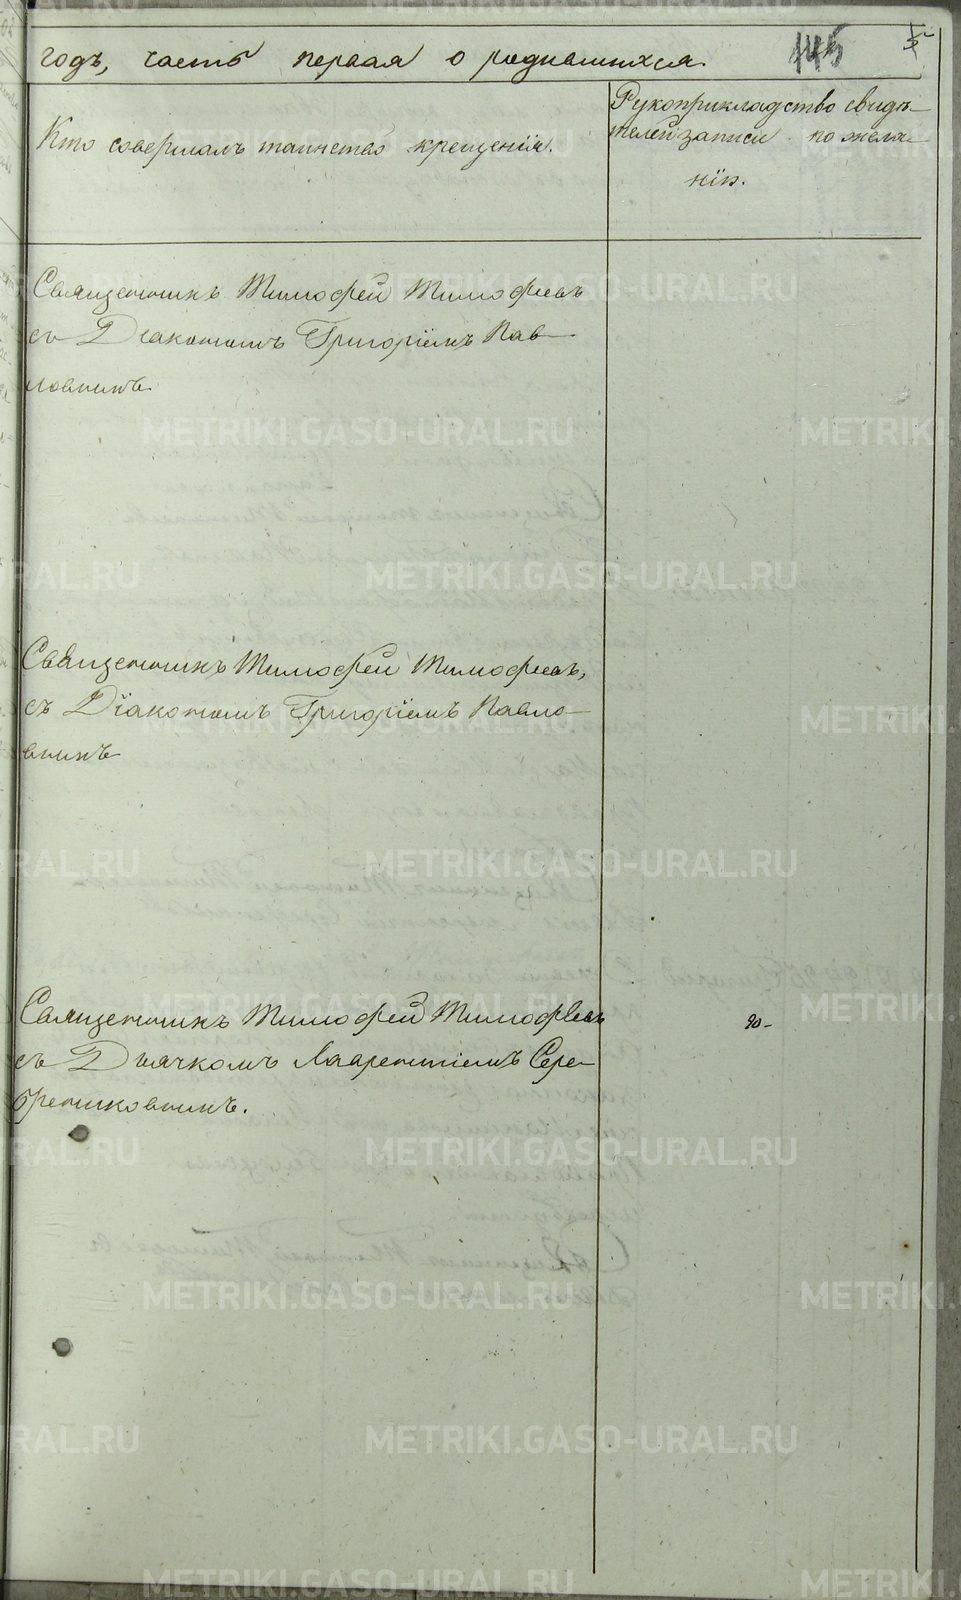 годъ, часть первая о родившихся
145
5
Кто совершалъ таинство крещенія.
Рукоприкладство свидѣ-
телей записи по жела-
нію.
Священникъ Тимофей Тимофеевъ
съ Діакономъ Григоріемъ Пав-
ловнинъ
Священникъ Тимофей Тимофеевъ,
съ Діакономъ Григоріемъ Павло-
внинъ
Священникъ Тимофей Тимофѣевъ
съ Дьячкомъ Лаврентіемъ Сере-
брениковнинъ.
METRIKI.GASO-URAL.RU